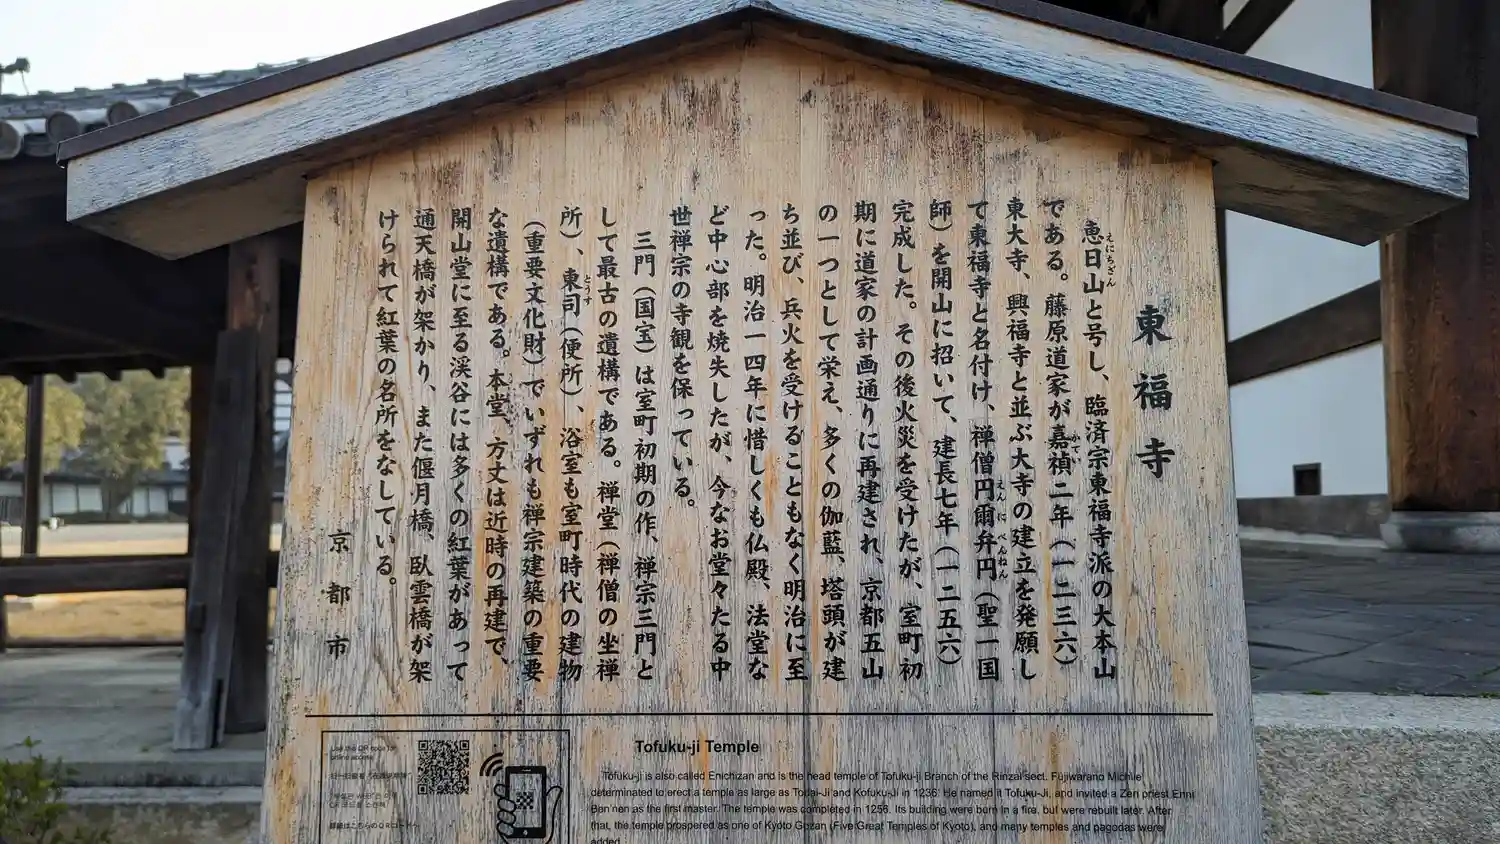 東福寺
恵日山と号し、臨済宗東福寺派の大本山
えにちざん
である。藤原道家が嘉禎二年（一二三六）
かてい
東大寺、興福寺と並ぶ大寺の建立を発願し
て東福寺と名付け、禅僧円爾弁円（聖一国
えんに べんねん
師）を開山に招いて、建長七年（一二五六）
完成した。その後火災を受けたが、室町初
期に道家の計画通りに再建され、京都五山
の一つとして栄え、多くの伽藍、塔頭が建
ち並び、兵火を受けることもなく明治に至
った。明治一四年に惜しくも仏殿、法堂な
ど中心部を焼失したが、今なお堂々たる中
世禅宗の寺観を保っている。
三門（国宝）は室町初期の作、禅宗三門と
して最古の遺構である。禅堂（禅僧の坐禅
所）、東司（便所）、浴室も室町時代の建物
とうす
（重要文化財）でいずれも禅宗建築の重要
な遺構である。本堂、方丈は近時の再建で、
開山堂に至る渓谷には多くの紅葉があって
通天橋が架かり、また偃月橋、臥雲橋が架
けられて紅葉の名所をなしている。
京都市
Use the QR code for
online access.
詳細はこちらのQRコードへ
Tofuku-ji Temple
Tofuku-ji is also called Enichizan and is the head temple of Tofuku-ji Branch of the Rinzai sect. Fujiwarano Michiie
determined to erect a temple as large as Todai-Ji and Kofuku-Ji in 1236. He named it Tofuku-Ji, and invited a Zen priest Enni
Ben'nen as the first master. The temple was completed in 1256. Its building were born in a fire, but were rebuilt later. After
that, the temple prospered as one of Kyoto Gozan (Five Great Temples of Kyoto), and many temples and pagodas were
added.